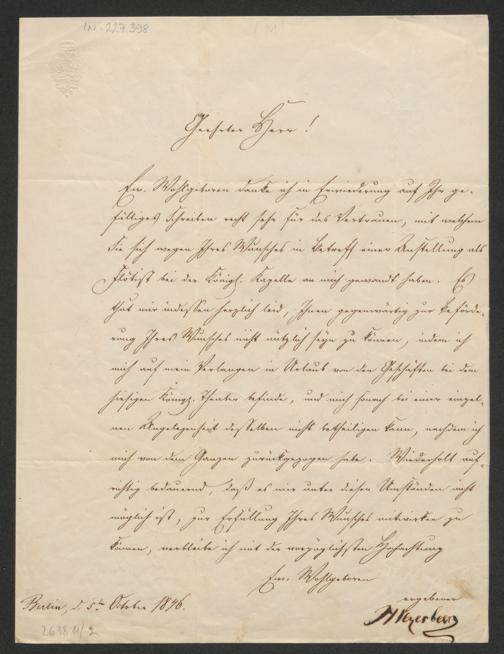 IN 227.398
Geehrter Herr!
Ew. Wohlgeboren danke ich in Erwiederung auf Ihr ge-
fälliges Schreiben recht sehr für das Vertrauen, mit welchem
Sie sich wegen Ihres Wunsches in Betreff einer Anstellung als
Flötist bei der Königl. Kapelle an mich gewandt haben. Es
thut mir indessen herzlich leid, Ihnen gegenwärtig zur Beförde-
rung Ihres Wunsches nicht nützlich seyn zu können, indem ich
mich auf mein Verlangen in Urlaub von den Geschäften bei dem
hiesigen Königl. Theater befinde, und mich sonach bei einer einzel-
nen Angelegenheit desselben nicht betheiligen kann, nachdem ich
mich von dem Ganzen zurückgezogen habe. Wiederholt auf-
richtig bedauernd, daß es mir unter diesen Umständen nicht
möglich ist, zur Erfüllung Ihres Wunsches mitwirken zu
können, verbleibe ich mit der vorzüglichsten Hochachtung
Ew. Wohlgeboren
ergebener
Berlin, d. 5ten October 1846.
Meyerbeer